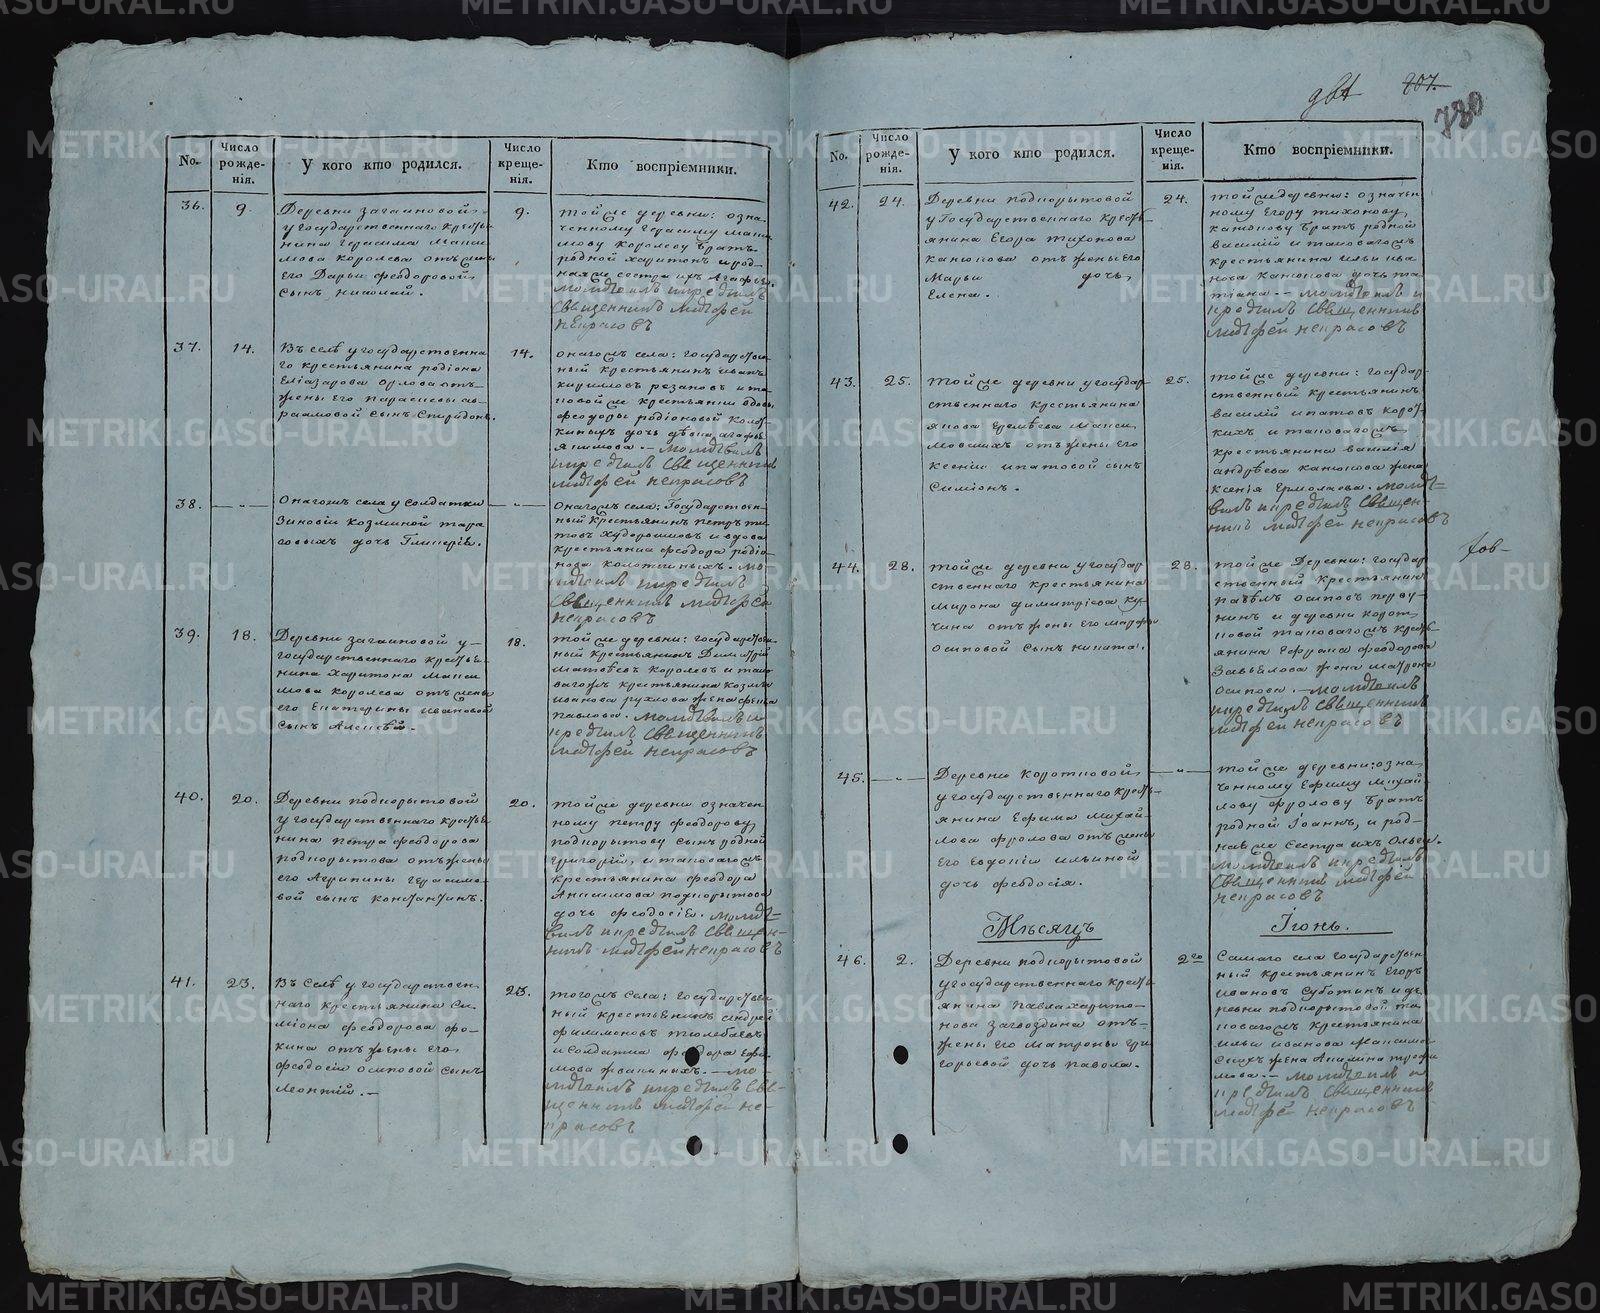 207.
780
No.
Число рожде-нія.
У кого кто родился.
Число креще-нія.
Кто воспріемники.
36.
9.
Деревни загаиновой
у государственнаго кресть
янина Герасима Макси
мова Королева отъ жены
Его Дарьи феодоровой
сынъ николай.
9.
тойже деревни: озна-
ченному Герасиму Макси
мову Королеву братъ
родной харитонъ и род-
ная же сестра ихъ Агафья.
молитвилъ икрестилъ
Священникъ матфей
некрасовъ
37.
14.
Въ селѣ у государственна
го крестьянина родіона
Еліазарова орлова отъ
жены Его параскевы ав-
раамовой сынъ Спиридонъ.
14.
онагожъ села: государствен
ный крестьянинъ иванъ
кириловъ резановъ и та-
ковой же крестьянки вдовы
феодоры родіоновой
дочь дѣвка агафья
якимова. - молитвилъ
икрестилъ священникъ
матфей некрасовъ
38.
Онагожъ села у солдатки
Зиновіи козминой тара
совыхъ дочь Гликерія.
Онагожъ села: Государствен-
ный крестьянинъ петръ ти-
товъ худорошковъ и вдова
крестьянка феодора родіо-
нова колоткиныхъ. мо-
литвилъ икрестилъ
священникъ матфей
некрасовъ
39.
18.
Деревни загаиновой у
государственнаго крестья-
нина харитона макси
мова королева отъ жены
его Екатерины ивановой
сынъ Алексѣй.
18.
тойже деревни: государствен-
ный крестьянинъ Димитрій
матвѣевъ Королевъ и тако
вагожъ крестьянина козмы
иванова рухлова жена фекла
павлова. молитвилъ и
крестилъ священникъ
матфей некрасовъ
40.
20.
Деревни подкорытовой
у государственнаго кресть
янина петра феодорова
подкорытова отъ жены
его Агрипины герасимо-
вой сынъ константинъ.
20.
тойже деревни означен
ному петру феодорову
подкорытову сынъ родной
григорій, и таковагожъ
крестьянина феодора
Анисимова подкорытова
дочь феодосія. молит-
вилъ икрестилъ священ-
никъ матфей некрасовъ
41.
23.
Въ Селѣ у государствен-
наго крестьянина Си-
міона феодорова фо-
кина отъ жены его
феодосіи осиповой сынъ
леонтій. -
23.
тогожъ села: государствен
ный крестьянинъ андрей
филимоновъ тюлебаевъ
и солдатка феодора Ефи-
мова . - мо-
литвилъ икрестилъ свя-
щенникъ матфей не-
красовъ
No.
Число рожде-нія.
У кого кто родился.
Число креще-нія.
Кто воспріемники.
42.
24.
Деревни подкорытовой
у Государственнаго кресть-
янина Егора тихонова
канюкова отъ жены Его
Марьи дочь
Елена.
24.
тойжедеревни: означен
ному Егору тихонову
канюкову братъ родной
василій и таковагожъ
крестьянина ильи ива
нова канюкова дочь та-
тіана. - молитвилъ и
крестилъ священникъ
матфей некрасовъ
43.
25.
тойже деревни у государ-
ственнаго крестьянина
якова Еремѣева макси
мовыхъ отъ жены его
ксеніи ипатовой сынъ
симіонъ.
25.
тойже деревни: государ-
ственный крестьянинъ
василій ипатовъ корот-
кихъ и таковагожъ
крестьянина
андрѣева канюкова жена
ксенія Ермолаева. молит-
вилъ икрестилъ священ-
никъ матфей некрасовъ
44.
28.
тойже деревни у государ
ственнаго крестьянина
мирона димитріева ку-
чина отъ жены его марфы
осиповой сынъ никита.
28.
тойже Деревни: государ
ственный крестьянинъ
павелъ осиповъ перву-
нинъ и деревни корот-
ковой таковагожъ кресть-
янина Ефрама феодорова
Завьялова жена матрона
осипова. - молитвилъ
икрестилъ священникъ
матфей некрасовъ
45.
Деревни коротковой
у государственнаго кресть-
янина Ефима михай-
лова фролова отъ жены
Его Евдокіи ильиной
дочь феодосія.
тойже деревни: озна-
ченному Ефиму михай-
лову фролову братъ
родной Іоаннъ, и род-
ная же сестра ихъ Ольга.
молитвилъ икрестилъ
священникъ матфей
некрасовъ
Мѣсяцъ Іюнь.
46.
2.
Деревни подкорытовой
у государственнаго кресть
янина павла харито-
нова загвоздина отъ
жены его матроны гри
горьевой дочь павола.
2го
Самаго села государствен
ный крестьянинъ Егоръ
ивановъ суботинъ и де
ревни подкорытовой та
ковагожъ крестьянина
ильи иванова максимов
скихъ жена Акилина трофи
мова. - молитвилъ и
крестилъ священникъ
матфей некрасовъ